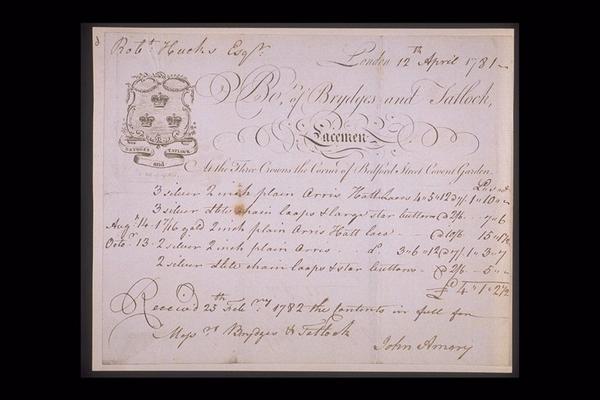 Robt. Hucks Esqr.
London 12th April 1781
Bo,, of Brydges and Tatlock,
Lacemen
BRYDGES TATLOCK
and
At the Three Crowns the Corner of Bedford Street Covent Garden.
3 silver 2 inch plain Arris Hatt Laces 4"5"12 @ 7/. 1"10"
3 silver dble chain loops & large star buttons @ 2/6 - 7"6
Augt. 14. 1 7/16 gold 2 inch plain Arris Hatt lace @ 10/6 15"1½
Octor. 13. 2 silver 2 inch plain Arris do. 3"6"12 @ 7/. 1"3"7
2 silver dble chain loops & star buttons @ 2/6 5"
£ 4"1"2½
Received 25th Febry 1782 the Contents in full for
Messrs Brydges & Tatlock
John Amory